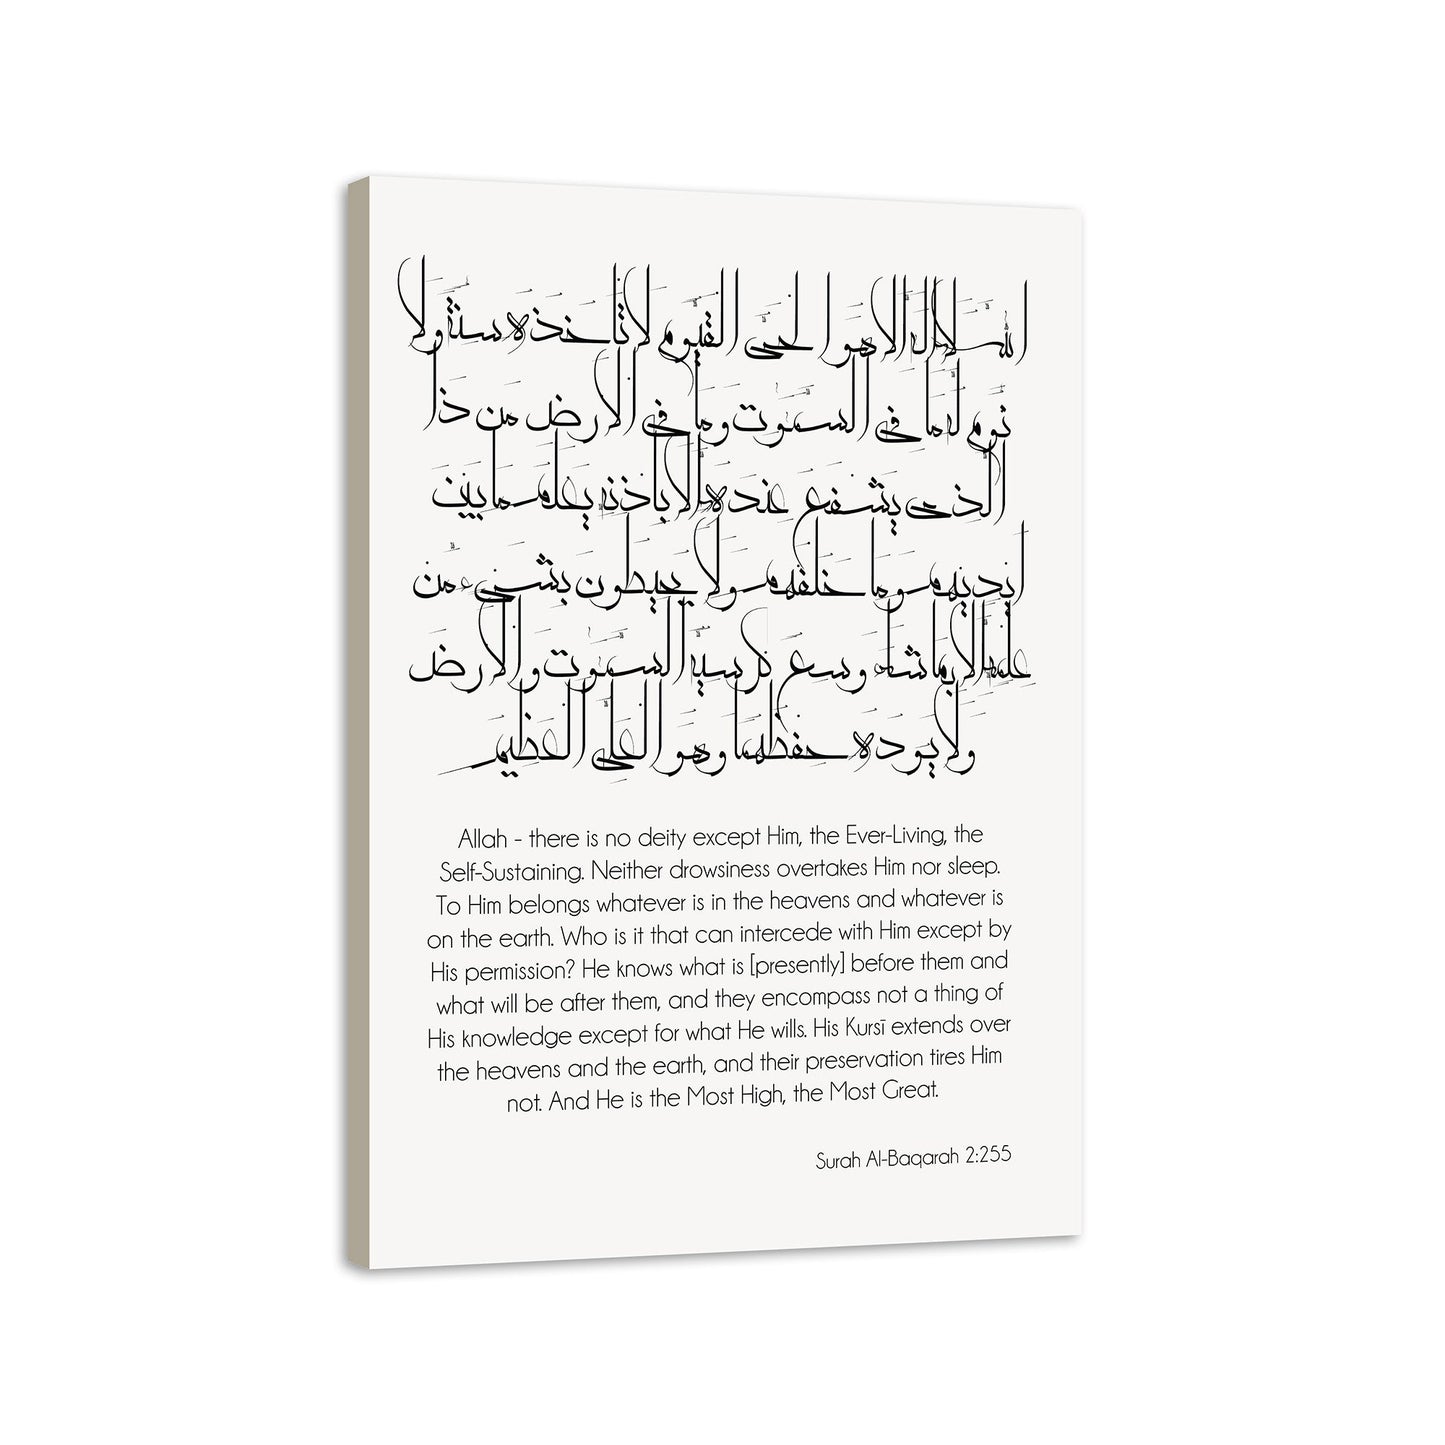 الله لا إله إلا هو الحي القيوم لا تأخذه سنة ولا
نوم له ما في السموت وما في الأرض من ذا
الذي يشفع عنده إلا بإذنه يعلم ما بين
أيديهم وما خلفهم ولا يحيطون بشيء من
علمه إلا بما شاء وسع كرسيه السموت والأرض
ولا يوده حفظهما وهو العلي العظيم
Allah - there is no deity except Him, the Ever-Living, the
Self-Sustaining. Neither drowsiness overtakes Him nor sleep.
To Him belongs whatever is in the heavens and whatever is
on the earth. Who is it that can intercede with Him except by
His permission? He knows what is [presently] before them and
what will be after them, and they encompass not a thing of
His knowledge except for what He wills. His Kursī extends over
the heavens and the earth, and their preservation tires Him
not. And He is the Most High, the Most Great.
Surah Al-Baqarah 2:255